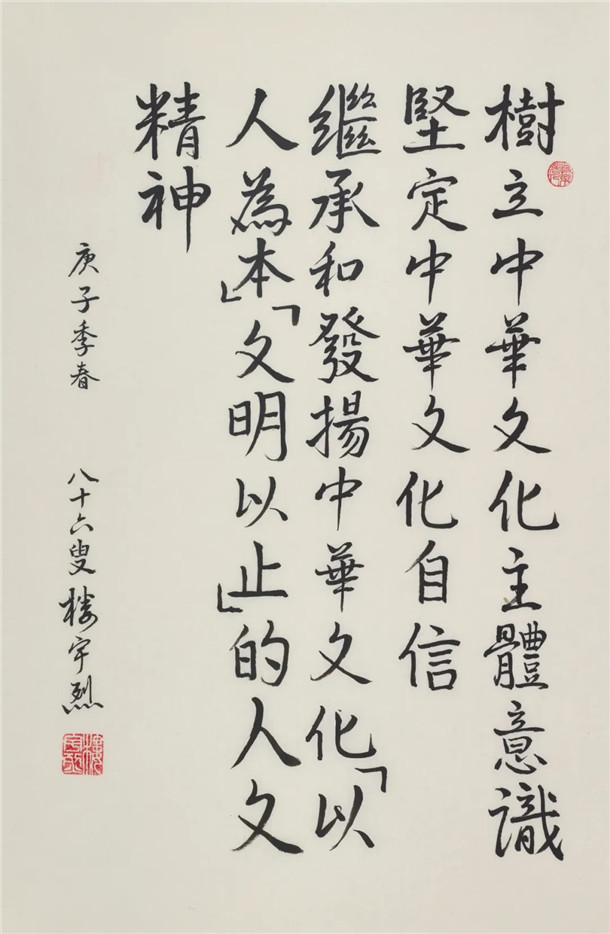 樹立中華文化主體意識
堅定中華文化自信
繼承和發揚中華文化「以
人為本」「文明以止」的人文
精神
庚子季春
八十六叟樓宇烈